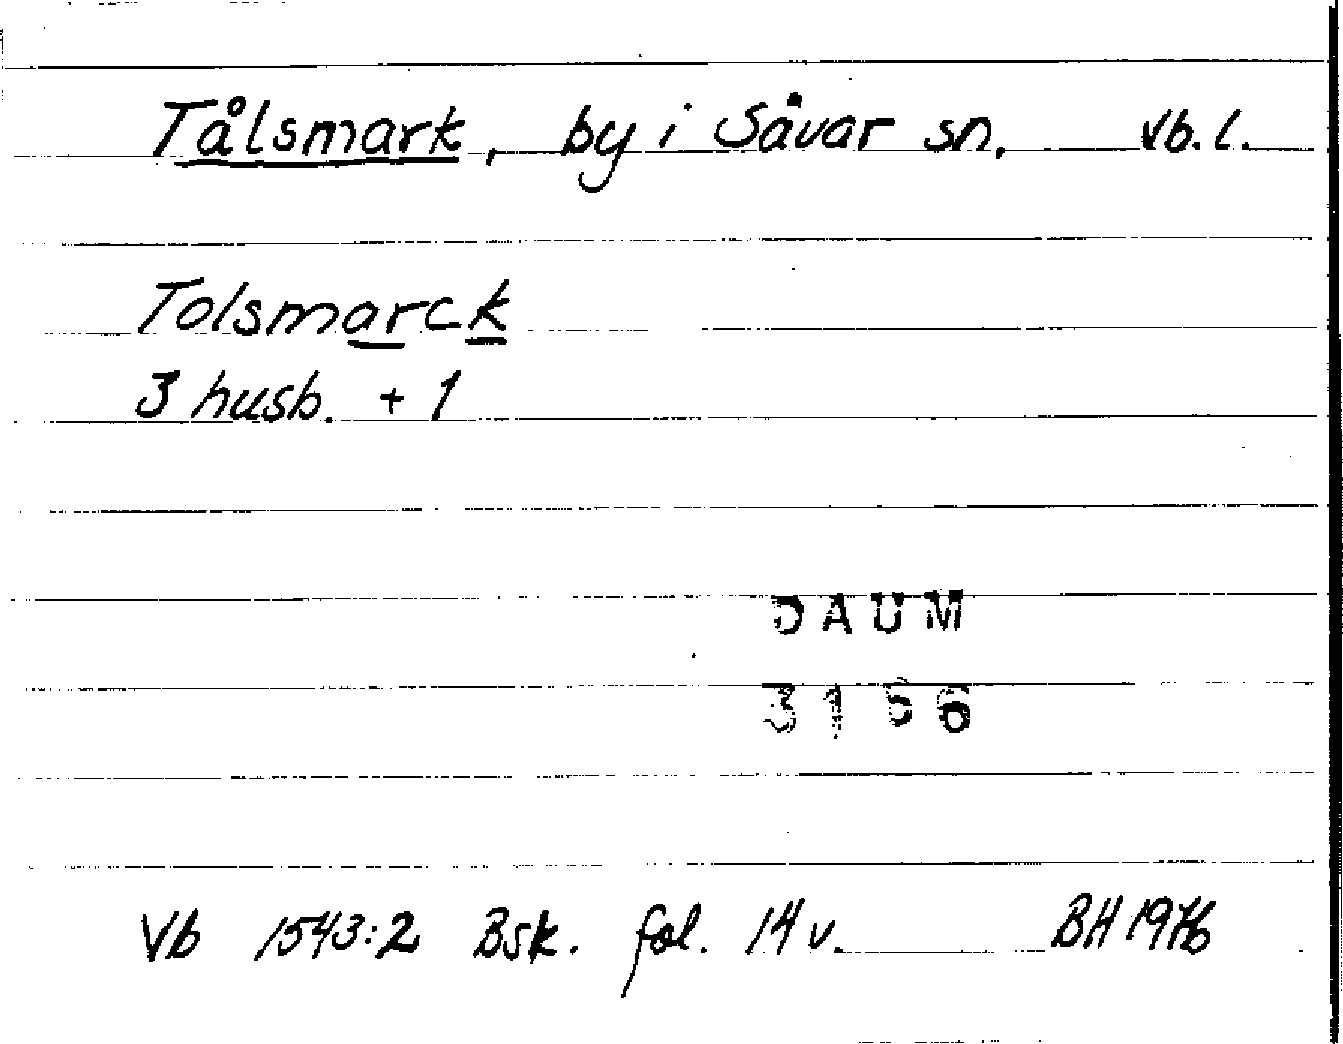 Tålsmark, by i Sävar sn. Vb. l.
Tolsmarck
3 husb. + 1
DAUM
3166
Vb 1543:2 Bsk. fol. 14 v. BH 1976